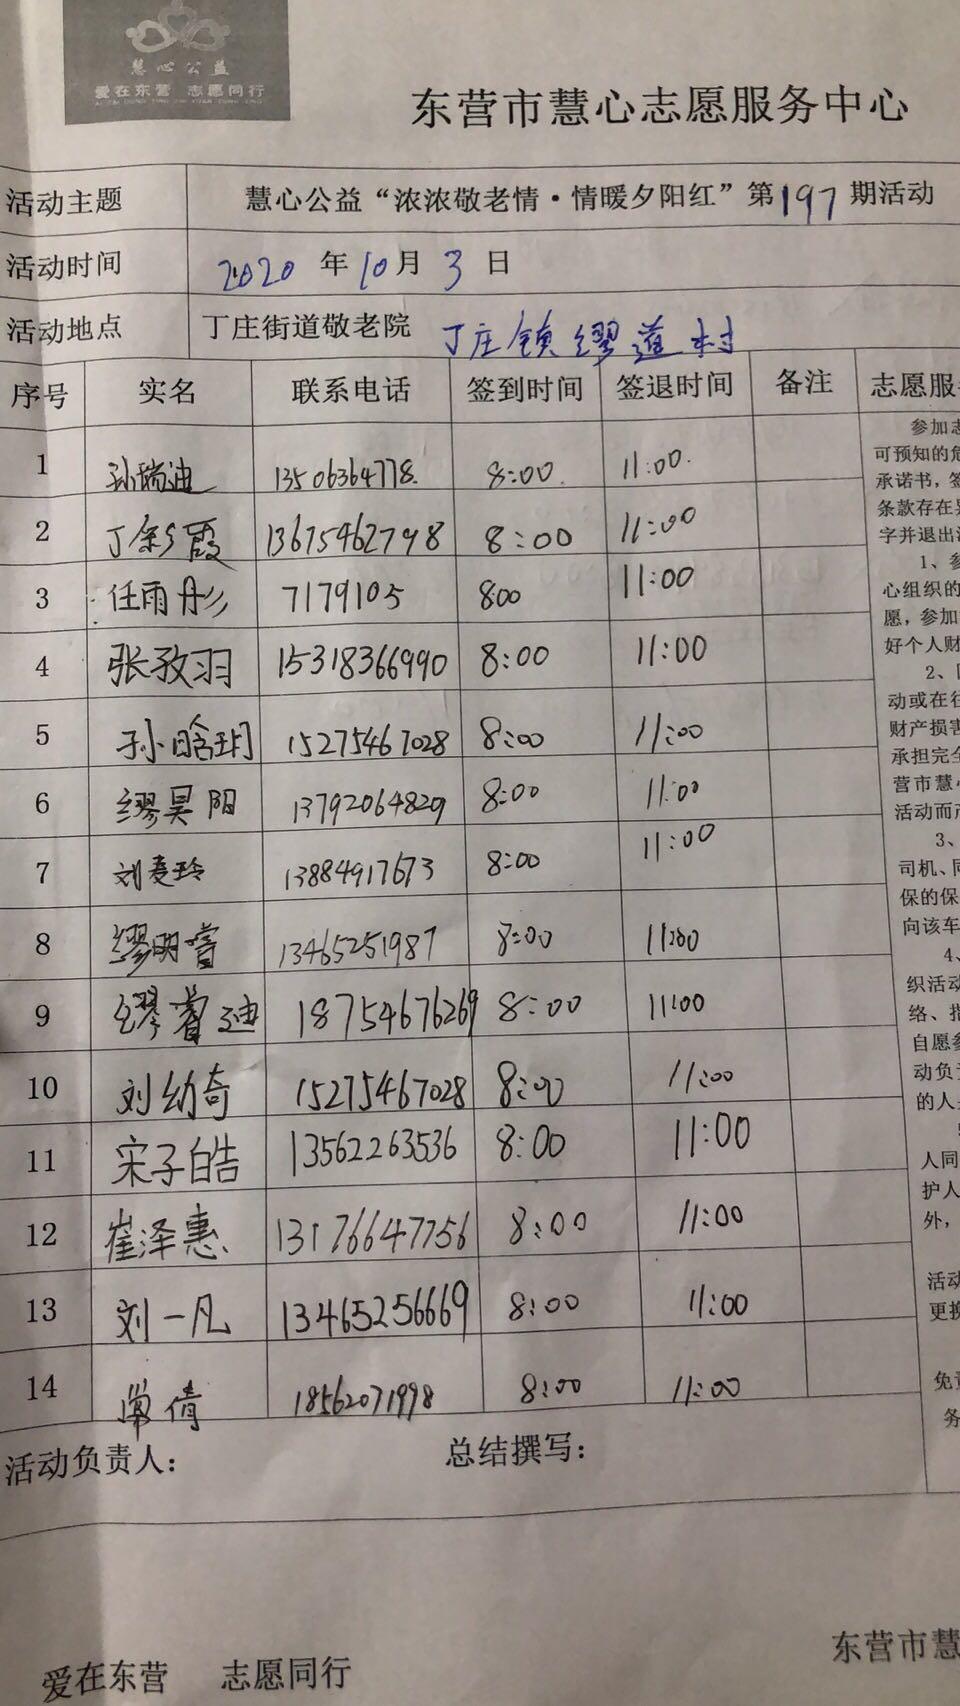 慧心公益
爱在东营 志愿同行
东营市慧心志愿服务中心
活动主题 慧心公益“浓浓敬老情·情暖夕阳红”第197期活动
活动时间 2020年10月3日
活动地点 丁庄街道敬老院 丁庄镇缪道村
序号 实名 联系电话 签到时间 签退时间 备注 志愿服
1 孙瑞迪 13506364778 8:00 11:00
2 丁彩霞 13675462798 8:00 11:00
3 任雨彤 7179105 8:00 11:00
4 张孜羽 15318366990 8:00 11:00
5 孙晗玥 15275467028 8:00 11:00
6 缪昊阳 13792064829 8:00 11:00
7 刘麦玲 13884917673 8:00 11:00
8 缪明 13465251987 8:00 11:00
9 缪睿迪 18754676269 8:00 11:00
10 刘幼奇 15275467028 8:00 11:00
11 宋子皓 13562263536 8:00 11:00
12 崔泽惠 13176647756 8:00 11:00
13 刘一凡 13465256669 8:00 11:00
14 常倩 18562071998 8:00 11:00
参加志
可预知的危
承诺书，签
条款存在
字并退出
1、参
心组织的
愿，参加
好个人财
2、
动或在往
财产损害
承担完全
营市慧心
活动而产
3、
司机、同
保的保
向该车
4、
织活动
络、指
自愿参
动负责
的人
人同
护人
外，
活动
更换
免责
务
活动负责人： 总结撰写：
东营市慧
爱在东营 志愿同行